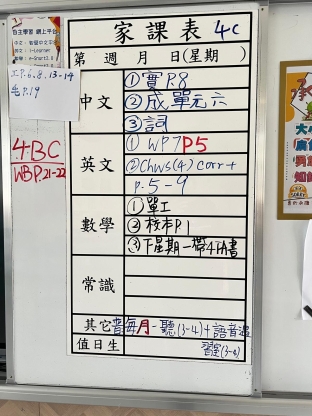 自主學習 網上平台
工P.6.8.13-14
毛P.19
4BC
WBP.21-22
家課表 4C
第 週 月 日(星期 )
中文
①實P.8
②成單元六
③詞
英文
①WP7 P5
②Chws(4) corr+
p.5-9
數學
①單工
②校本P1
③下星期一帶4下A書
常識
其它
普每月-聽(3-4)+語音
值日生